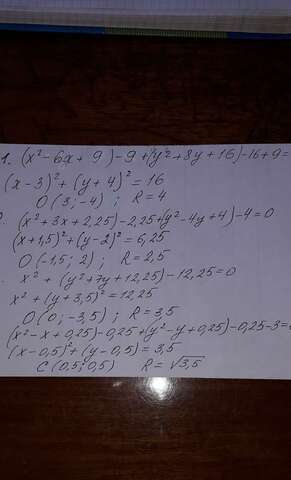 1. (x² - 6x + 9) - 9 + (y² + 8y + 16) - 16 + 9 =
(x - 3)² + (y + 4)² = 16
O (3; -4) ; R = 4
(x² + 3x + 2,25) - 2,25 + (y² - 4y + 4) - 4 = 0
(x + 1,5)² + (y - 2)² = 6,25
O (-1,5; 2) ; R = 2,5
x² + (y² + 7y + 12,25) - 12,25 = 0
x² + (y + 3,5)² = 12,25
O (0; -3,5) ; R = 3,5
(x² - x + 0,25) - 0,25 + (y² - y + 0,25) - 0,25 - 3 =
(x - 0,5)² + (y - 0,5) = 3,5
C (0,5; 0,5) R = √3,5